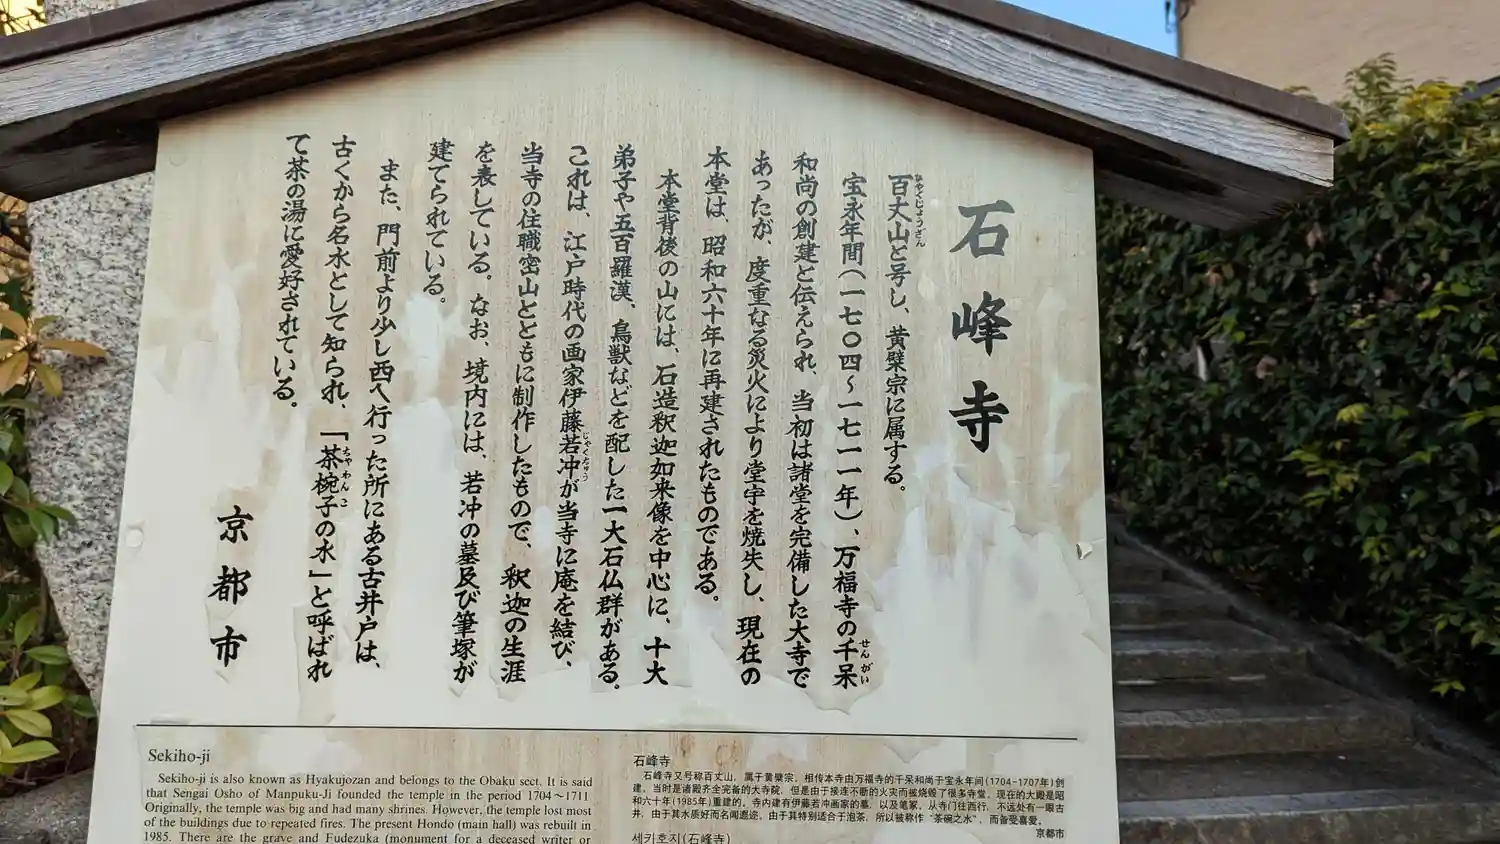 石峰寺
百丈山と号し、黄檗宗に属する。
ひゃくじょうざん
宝永年間（一七〇四～一七一一年）、万福寺の千呆
せんがい
和尚の創建と伝えられ、当初は諸堂を完備した大寺で
あったが、度重なる災火により堂宇を焼失し、現在の
本堂は、昭和六十年に再建されたものである。
本堂背後の山には、石造釈迦如来像を中心に、十大
弟子や五百羅漢、鳥獣などを配した一大石仏群がある。
これは、江戸時代の画家伊藤若冲が当寺に庵を結び、
じゃくちゅう
当寺の住職密山とともに制作したもので、釈迦の生涯
を表している。なお、境内には、若冲の墓及び筆塚が
建てられている。
また、門前より少し西へ行った所にある古井戸は、
古くから名水として知られ、「茶椀子の水」と呼ばれ
ちゃわんこ
て茶の湯に愛好されている。
京都市
Sekiho-ji
Sekiho-ji is also known as Hyakujozan and belongs to the Obaku sect. It is said
that Sengai Osho of Manpuku-Ji founded the temple in the period 1704～1711
Originally, the temple was big and had many shrines. However, the temple lost most
of the buildings due to repeated fires. The present Hondo (main hall) was rebuilt in
1985. There are the grave and Fudezuka (monument for a deceased writer or
石峰寺
石峰寺又号称百丈山，属于黄檗宗，相传本寺由万福寺的千呆和尚于宝永年间(1704-1707年)创
建，当时是诸殿齐全完备的大寺院，但是由于接连不断的火灾而被烧毁了很多寺堂，现在的大殿是昭
和六十年(1985年)重建的。寺内建有伊藤若冲画家的墓，以及笔冢，从寺门往西行，不远处有一眼古
井，由于其水质好而名闻遐迩，由于其特别适合于泡茶，所以被称作“茶碗之水”，而备受喜爱。
京都市
세키호지(石峰寺)